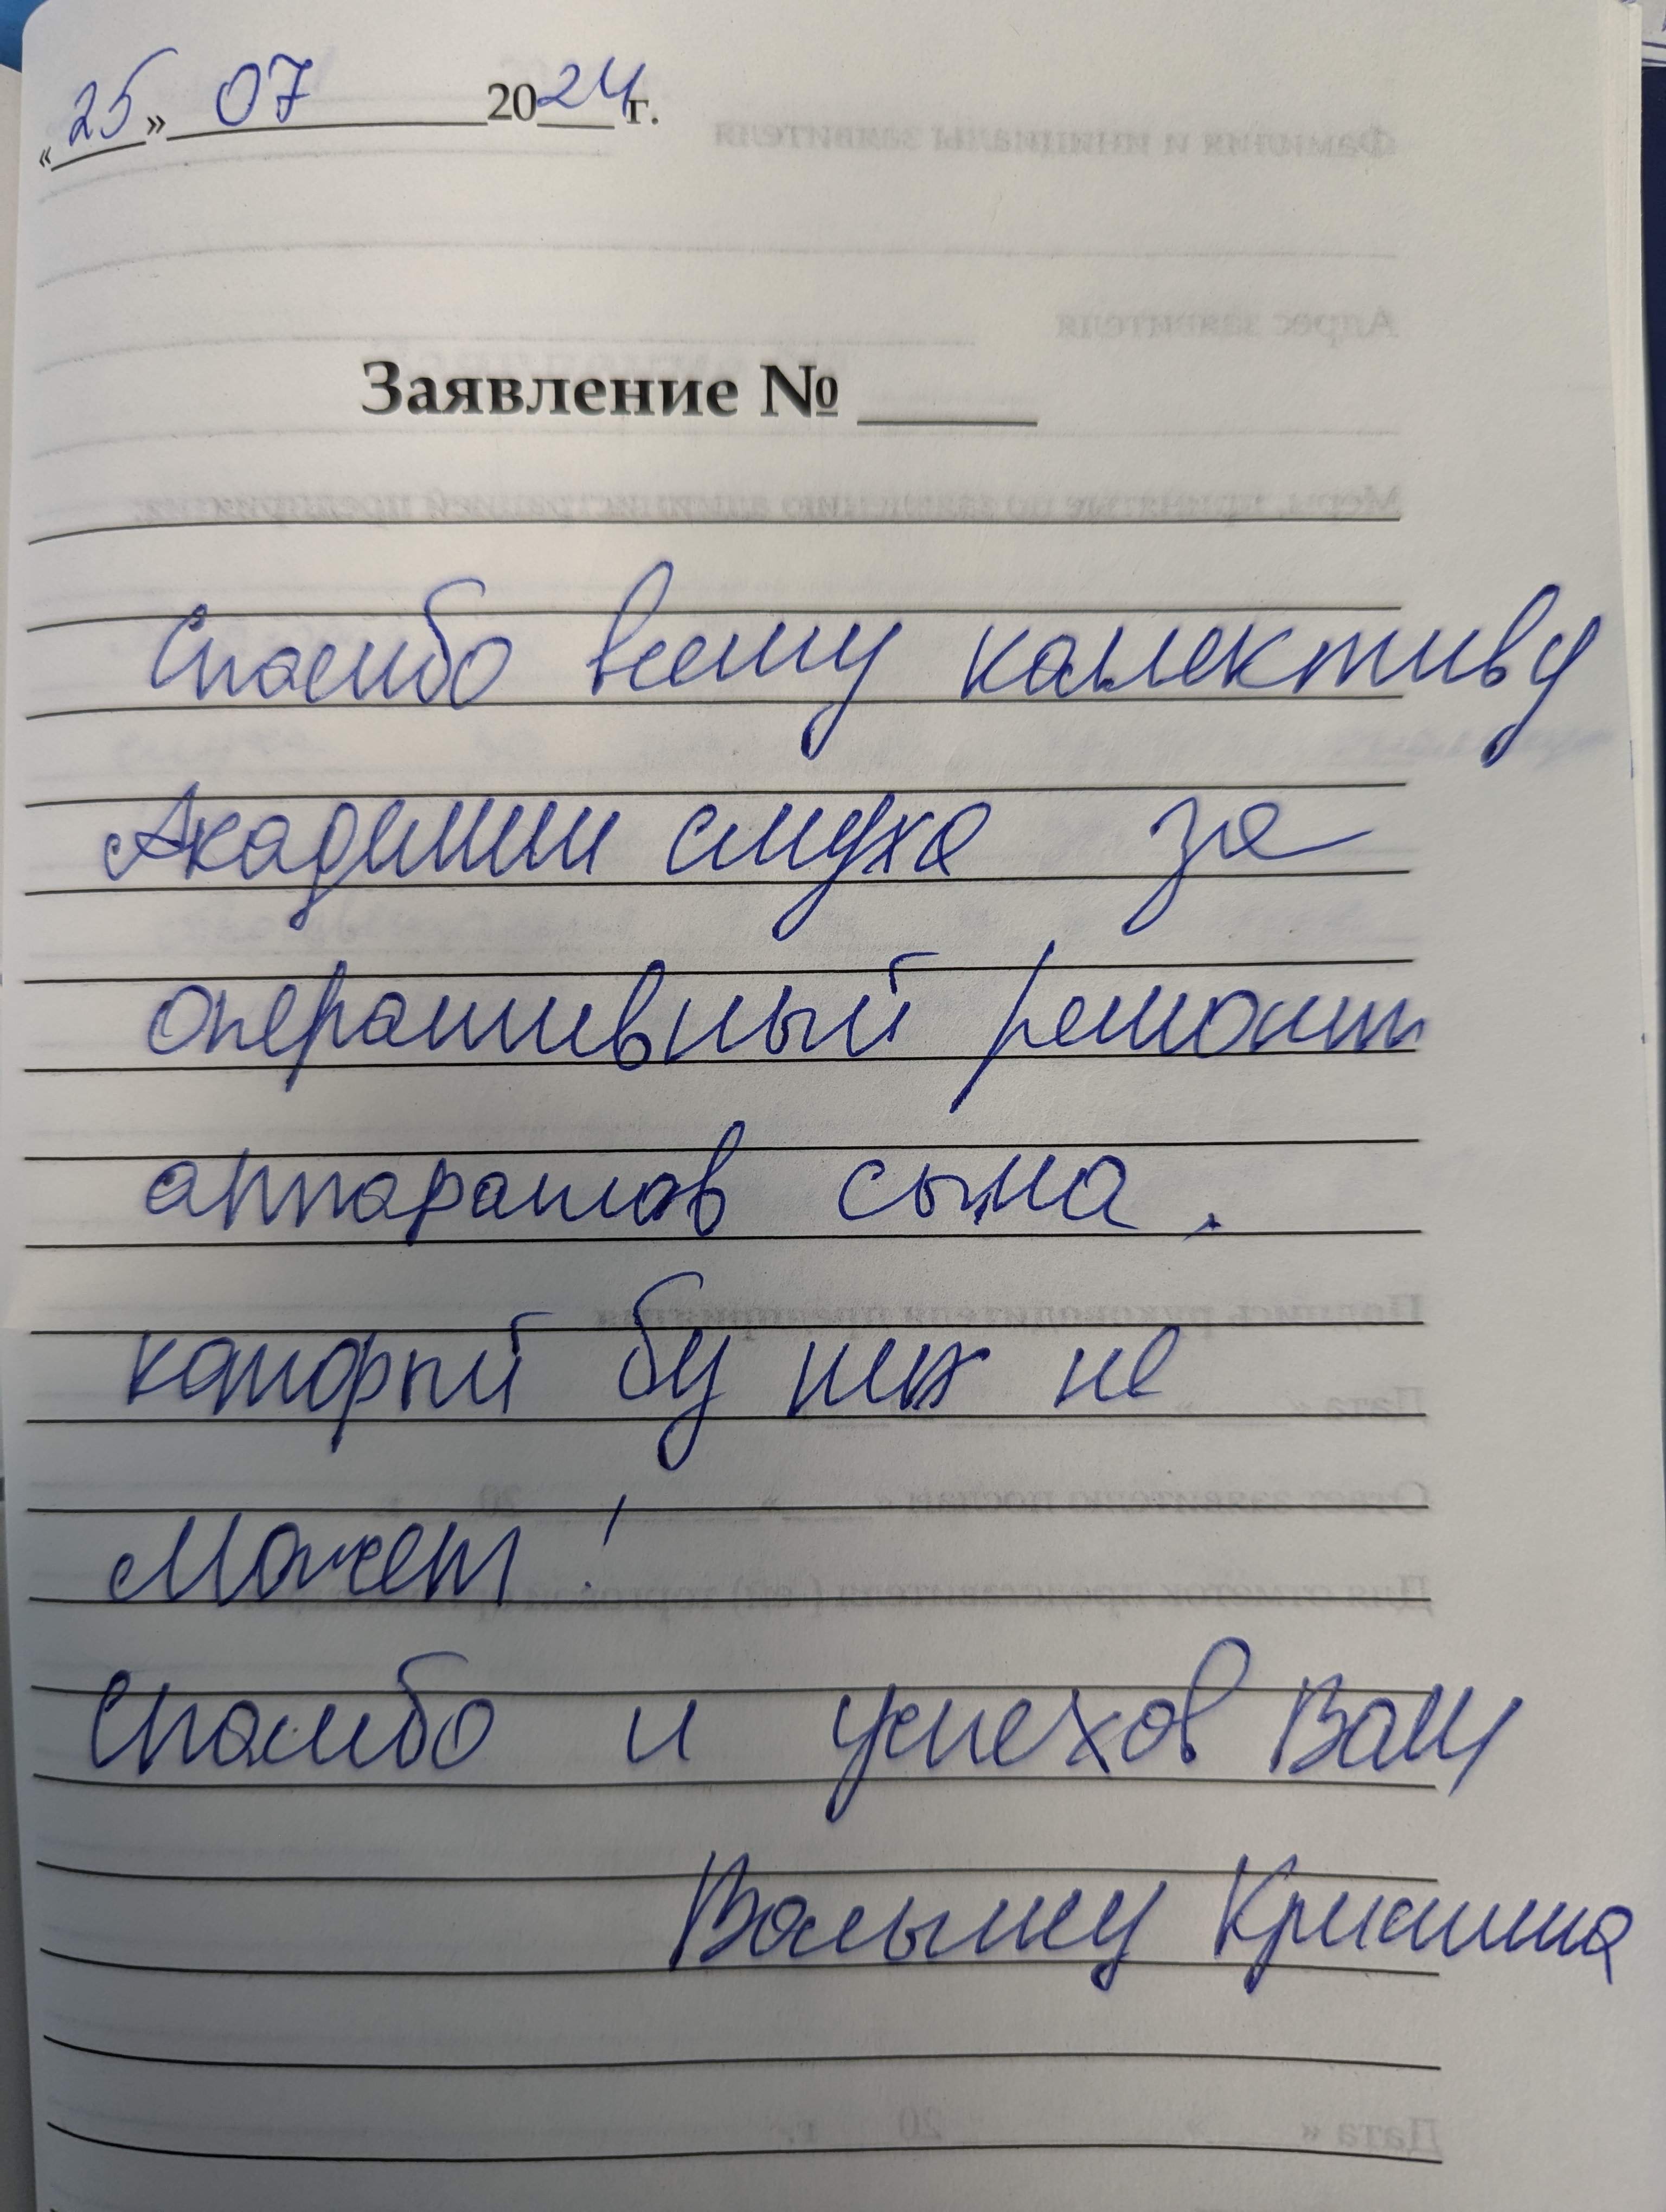 «25» 07 2024г.
Заявление № ____
Спасибо всему коллективу
Академии слуха за
оперативный ремонт
аппаратов сына,
который бу них не
может!
Спасибо и успехов Вам
Кристина